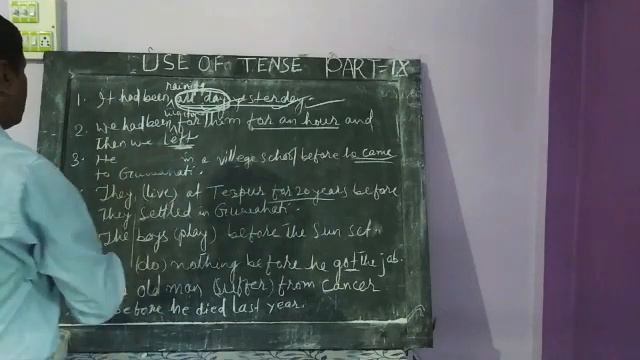 USE OF TENSE PART-IX
1. It had been raining all day yesterday.
2. We had been waiting for them for an hour and
Then we left
3. He in a village school before he came
to Guwahati.
They (live) at Tezpur for 20 years before
They settled in Guwahati.
The boys (play) before the Sun set.
(do) nothing before he got the job.
old man (suffer) from cancer
before he died last year.